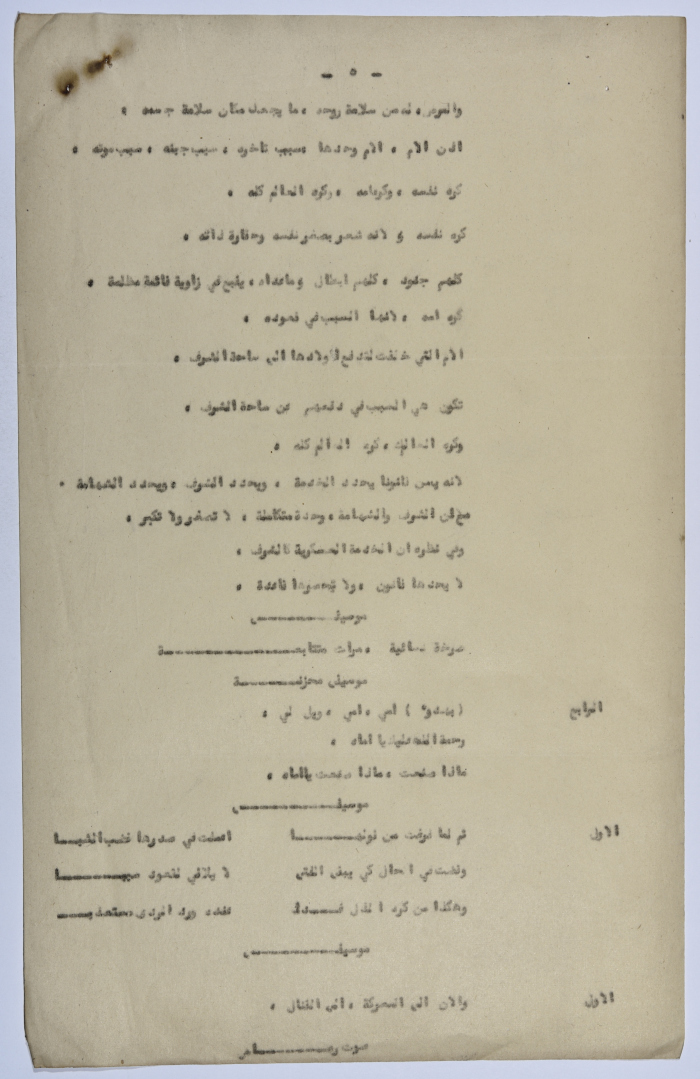 - ٥ -
والعوض له من سلامة روحه ، ما يجعله منان سلامة جسمه ،
اذن الام ، الام وحدها ، سبب تاخره ، سبب جبنه ، سبب موته ،
كره نفسه ، وكره امه ، وكره العالم كله ،
كره نفسه ، لانه شعر بصغر نفسه وحقارة ذاته ،
كلهم جنود ، كلهم ابطال ، وماعداه ، يقبع في زاوية قاتمة مظلمة ،
كره امه ، لانها السبب في قعوده ،
الام التي خلقت لتدفع اولادها الى ساحة الشرف ،
تكون هي السبب في دفعهم عن ساحة الشرف ،
وكره العالم ، كره العالم كله ،
لانه يسن قانونا يحدد الخدمة ، ويحدد الشرف ، ويحدد الشهامة ،
مع ان الشرف والشهامة ، وحدة متكاملة ، لا تصغر ولا تكبر ،
وفي نظره ان الخدمة العسكرية كالشرف ،
لا يحدها قانون ، ولا تحصرها قاعدة ،
موسيقـــــــى
صرخة نسائية ، مرات متتابعـــــــــــة
موسيقى محزنـــــــة
الرابع ( بهدوء ) امي ، امي ، ويل لي ،
رحمة الله عليك يا اماه ،
ماذا صنعت ، ماذا صنعت يا اماه ،
موسيقـــــــى
الاول ثم لما عرفت من نونـــــــا اعملت في صدرها غضب الشبـــــا
وقضت في الحال كي يبقى الفتى لا يلاقي لقعود سببـــــــا
وهكذا من كره الذل فـــــدا عنده ورد الردى مستعذبـــــا
موسيقـــــــى
الاول والان الى المعركة ، الى القتال ،
صوت رصـــــــاص